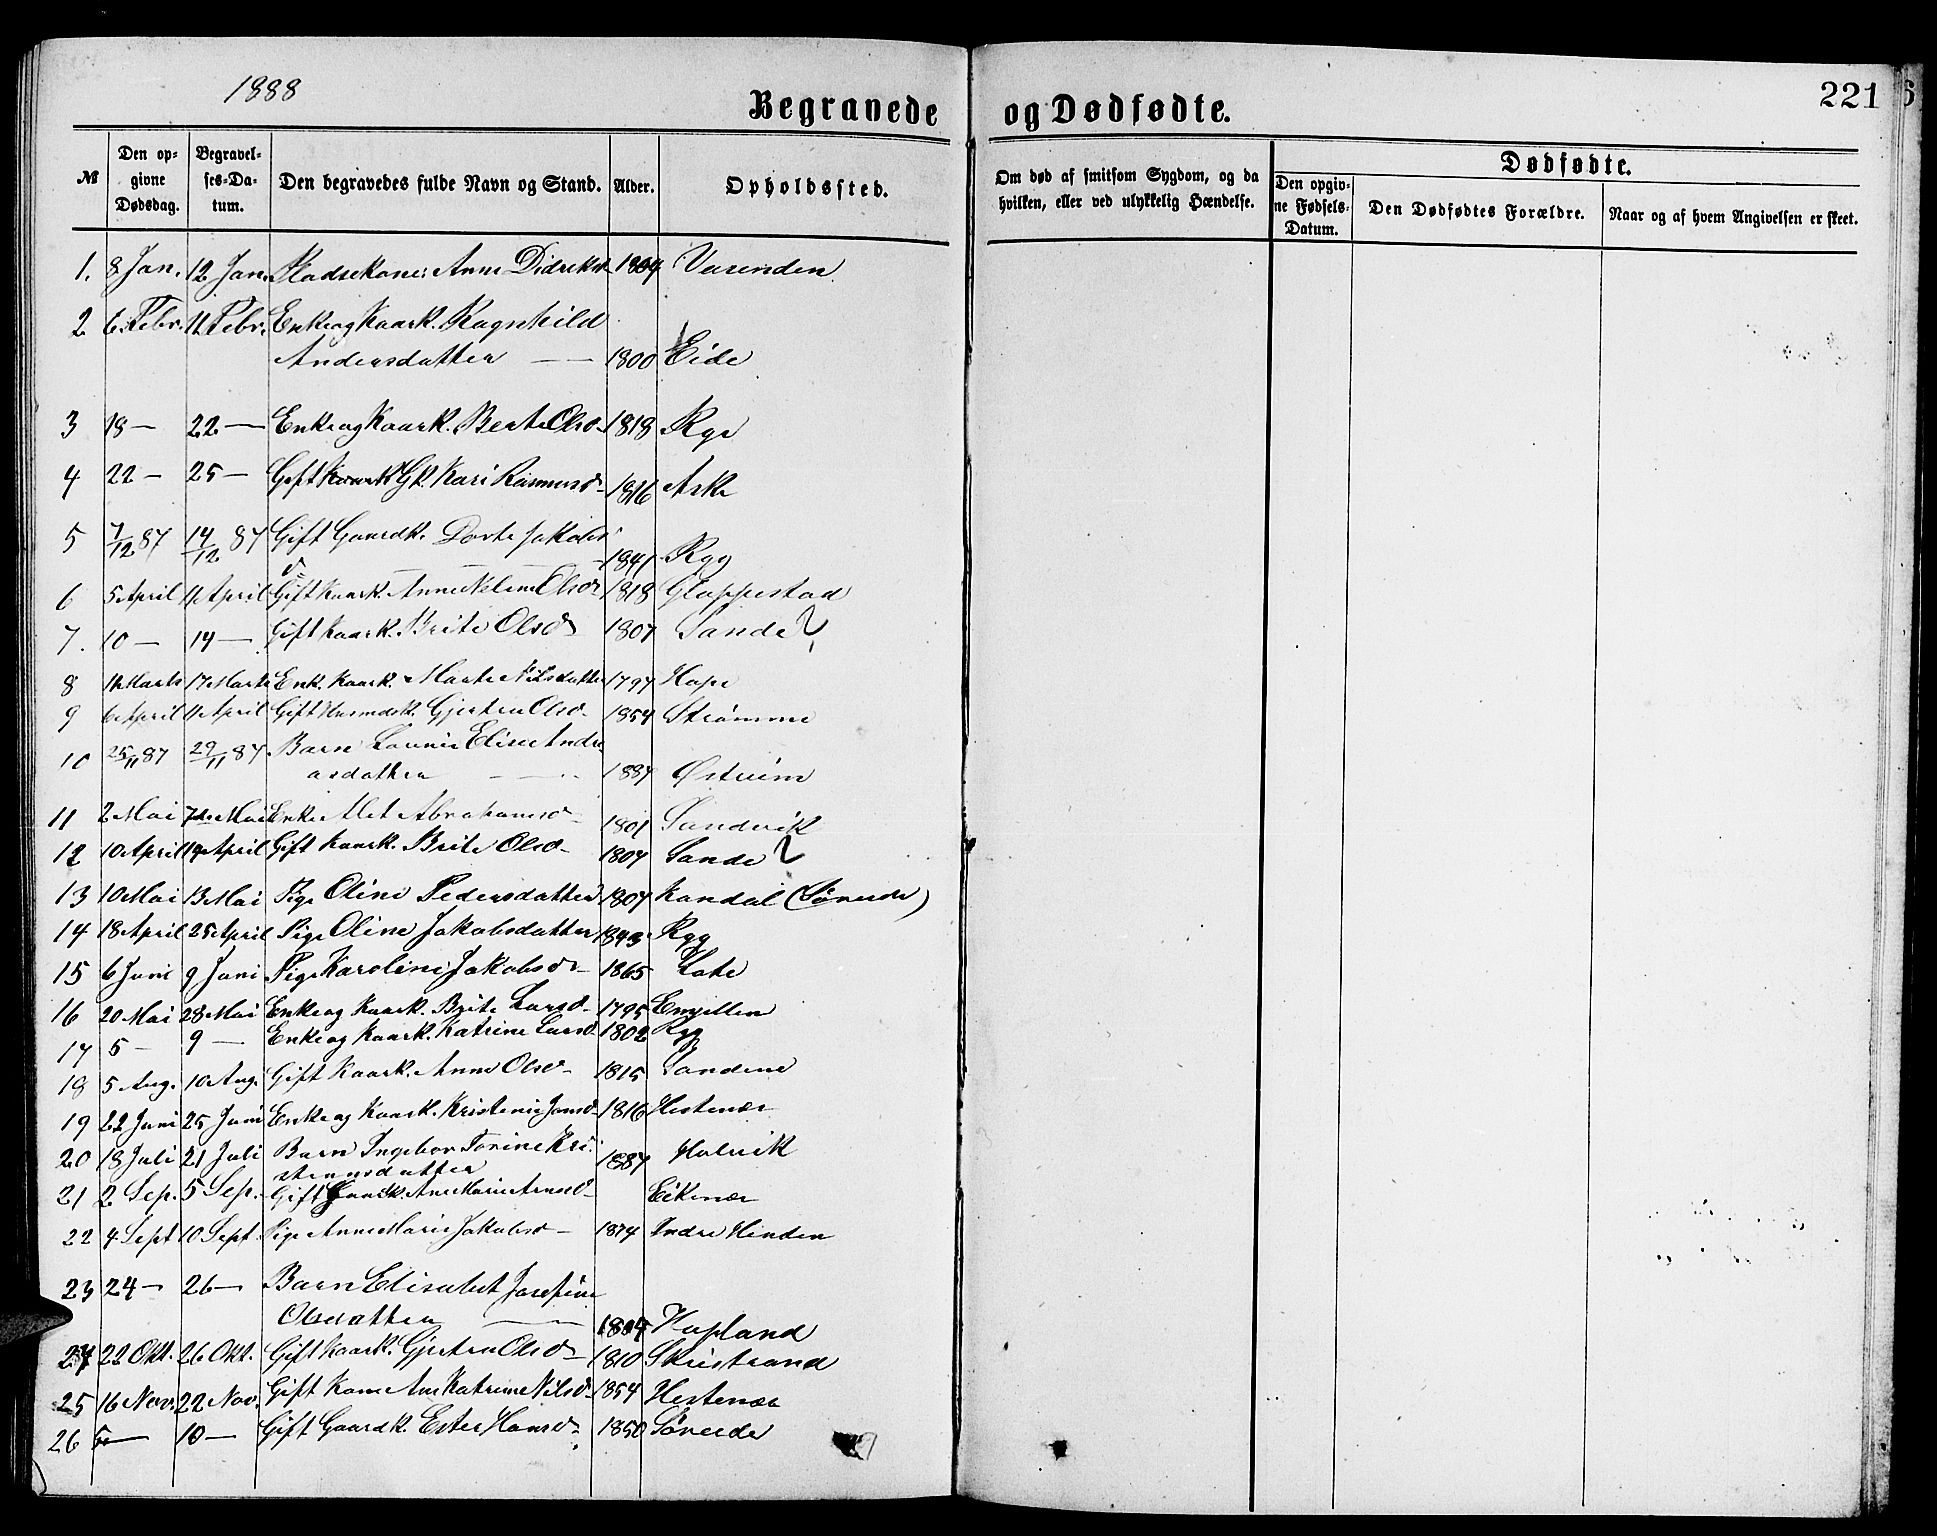 1888
Begravede og Dødfødte.
221
№ Den opgivne Dødsdag. Begravelses-Datum. Den begravedes fulde Navn og Stand. Alder. Opholdssted.
Om død af smitsom Sygdom, og da hvilken, eller ved ulykkelig Hændelse.
Dødfødte.
Den opgivne Fødsels-Datum. Den Dødfødtes Forældre. Naar og af hvem Angivelsen er skeet.
1. 8 Jan. 12 Jan. Pladsekone: Anne Didriksd. 1804
2 6 Febr. 11 Febr. Enke og Kaark. Ragnhild
Andersdatter — 1800 Eide
3 18 — 22 — Enke og Kaark. Berte Olsd. 1818 Ryg
4 22 — 25 — Gift Gk. Kari Rasmusd. 1816 Aske
5 7/12 87 14/12 87 Gift Gaardk. Dorte Jakobs
d. — 1841 Ryg
6 5 April 11 April Gift Kaark. Anne Olsd. 1818 Gloppestad
7. 10 — 14 — Gift Kaark. Brite Olsd 1807 Sande
8 Marts 17 Marts Enk. Kaark. Marte Nilsdatter 1797 Hope
9 6 April 11 April Gift Husmdsk. Gjertru Olsd. 1854 Strømme
10 25/11 87 29/11 87 Barn Elise Andre
asdatter — 1887
11 2 Mai 7de Mai Enke Alet Abrahamsd. 1801 Sandvik
12 10 April 14 April Gift Kaark. Brite Olsd. 1807 Sande
13 10 Mai 13 Mai Pige Oline Pedersdatter 1807 Kandal
14 18 April 25 April Pige Oline Jakobsdatter 1843 Ryg
15 6 Juni 9 Juni Pige Karoline Jakobsd. 1865 Lote
16 20 Mai 28 Mai Enke og Kaark. Brite Larsd. 1795
17 5 — 9 — Enke og Kaark. Katrine Larsd. 1802 Ryg
18 5 Aug. 10 Aug. Gift Kaark. Anne Olsd. 1815 Sandene
19 22 Juni 25 Juni Enke og Kaark. Kristense Jonsd. 1816 Hestenær
20 18 Juli 21 Juli Barn Ingebor Tonine Kri
stensdatter 1887 Holvik
21 2 Sep. 5 Sep. Gift Gaardk. Ane Marie Arnesd. Eikenær
22 4 Sept 10 Sept. Pige Anne Marie Jakobsd. 1874 Indre Hinden
23 24 — 26 — Barn Elisabet Josefine
Olsdatter — Hopland
24 22 Okt. 26 Okt. Gift Kaark. Gjertru Olsd. 1810 Skristrand
25 16 Nov. 22 Nov. Gift Kone Ane Katrine Nilsd. 1854 Hestenær
26 5 — 10 — Gift Gaardk. Ester Hansd. 1850 Søreide